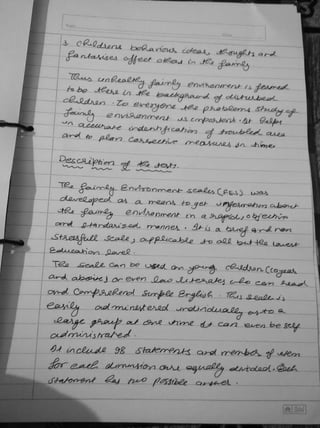 s childrens behaviour ideas, thoughts and
fantasises affect others in the family
Thus unhealthy family environment is formed
to be there in the background of disturbed
children. To everyone the problems study of
family environment is important. It helps
in accurate indentification of troubled area
and to plan corrective measures in time.
Description of the test:
The family Environment scales (FES) was
developed as a means to get information about
the family environment in a rapid, objective
and standarised manner. It is a brief and non
stressfull scale, applicable to all but the lowest
Education level.
The scale can be used on young children (10 years
and above) or even low literates who can read
and comprehend simple English. This scale is
easily administered individually or to a
large group at one time it can even be self
administrated.
It include 98 statements and member of item
for each dimension are equally divided. Each
statement has two possible answer.